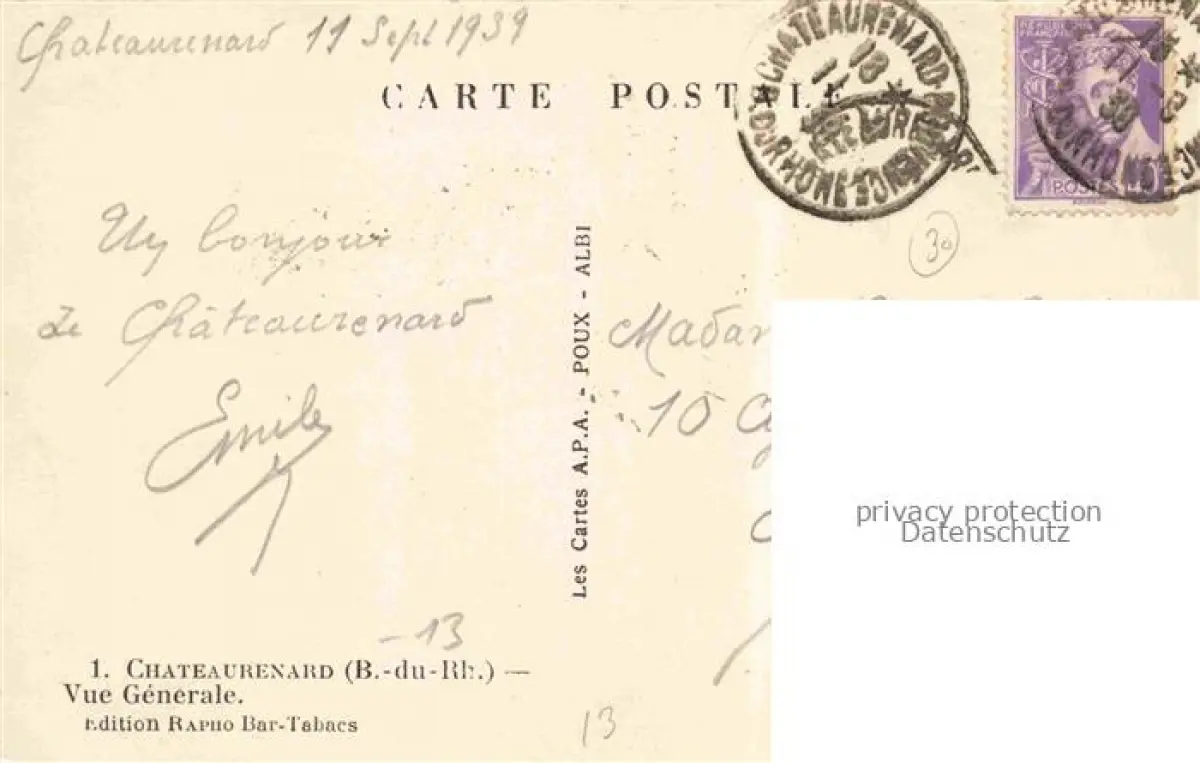 Chateaurenard 11 Sept 1939
CARTE POSTALE
CHATEAURENARD-PR
BCHES DU RHONE
18
11
REPUBLIQUE
FRANÇAISE
POSTES 40
30
Un bonjour
de Châteaurenard
Emile
Les Cartes A.P.A. - POUX - ALBI
Madam
10
privacy protection
Datenschutz
-13
1. CHATEAURENARD (B.-du-Rh.) —
Vue Générale.
Edition RAPHO Bar-Tabacs
13